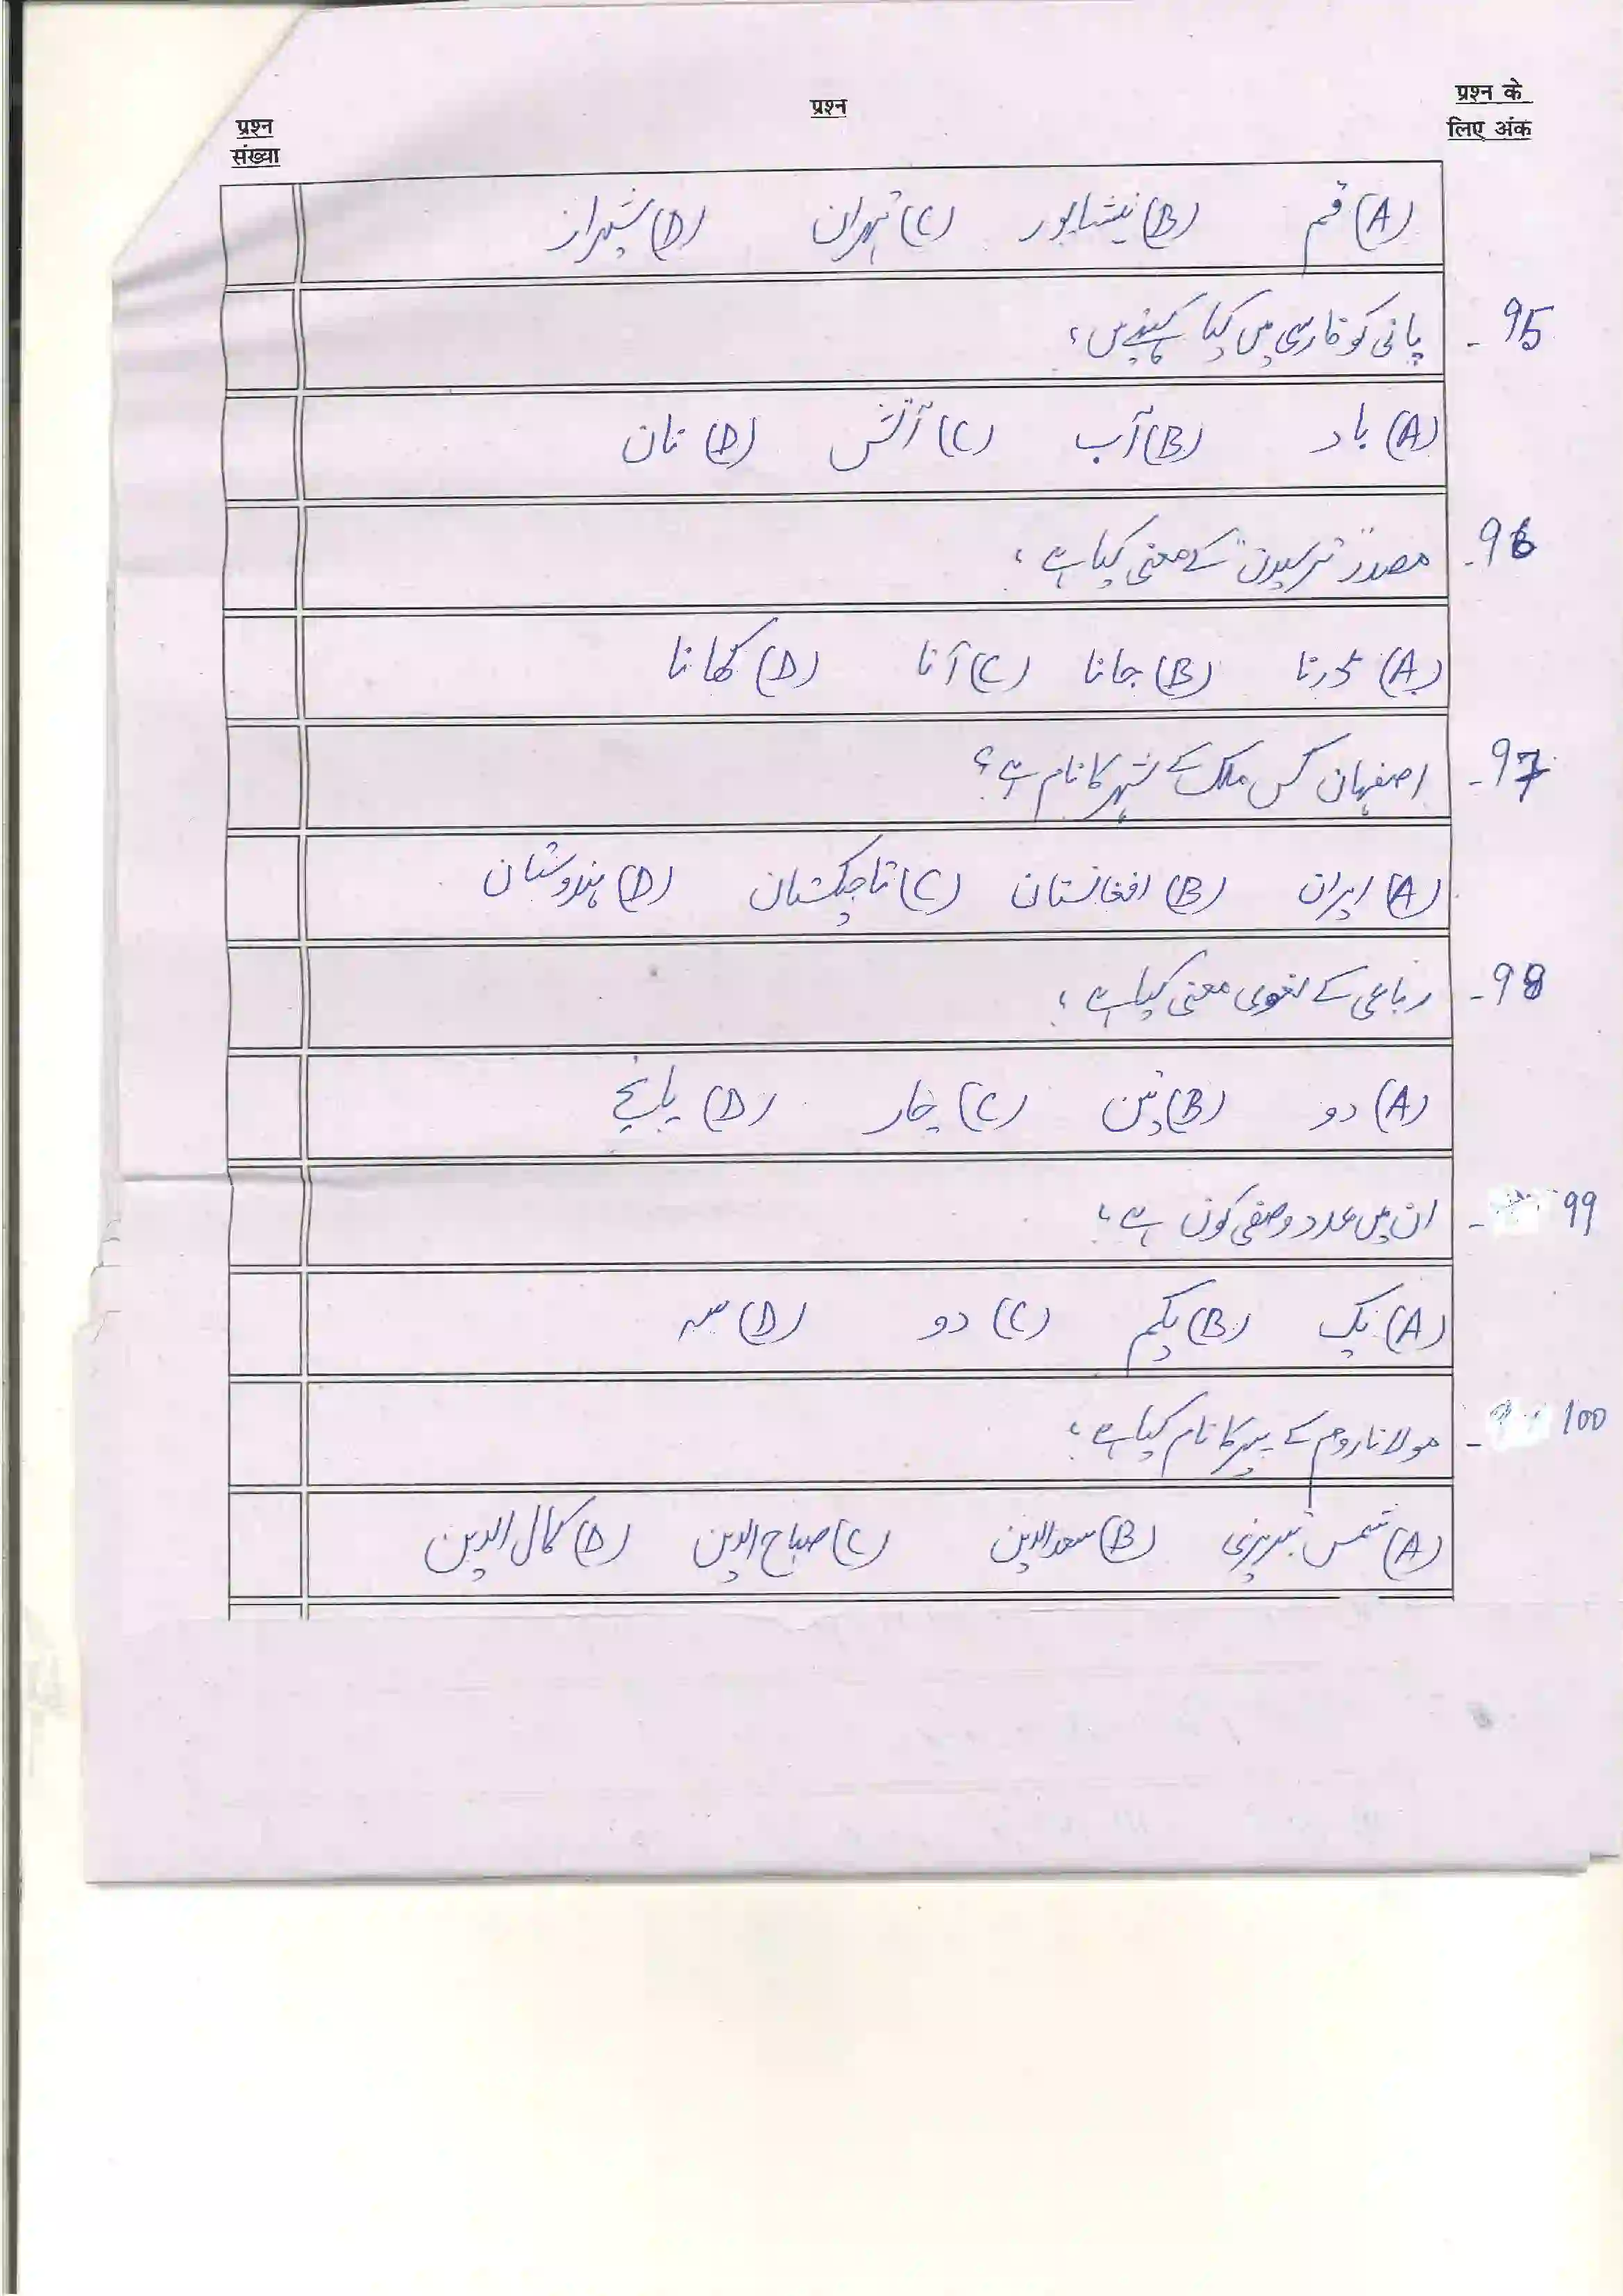 प्रश्न संख्या
प्रश्न
प्रश्न के लिए अंक
(A) قم (B) نیشاپور (C) تہران (D) شیراز
95 - پانی کو فارسی میں کیا کہتے ہیں؟
(A) باد (B) آب (C) آتش (D) نان
96 - مصدر "ترسیدن" کے معنی کیا ہے؟
(A) ڈرنا (B) جانا (C) آنا (D) کھانا
97 - اصفہان کس ملک کے شہر کا نام ہے؟
(A) ایران (B) افغانستان (C) تاجکستان (D) ہندوستان
98 - رباعی کے لغوی معنی کیا ہے؟
(A) دو (B) تین (C) چار (D) پانچ
99 - ان میں عدد وصفی کون ہے؟
(A) یک (B) یکم (C) دو (D) سہ
100 - مولانا روم کے پیر کا نام کیا ہے؟
(A) شمس تبریزی (B) سعد الدین (C) صباح الدین (D) کمال الدین